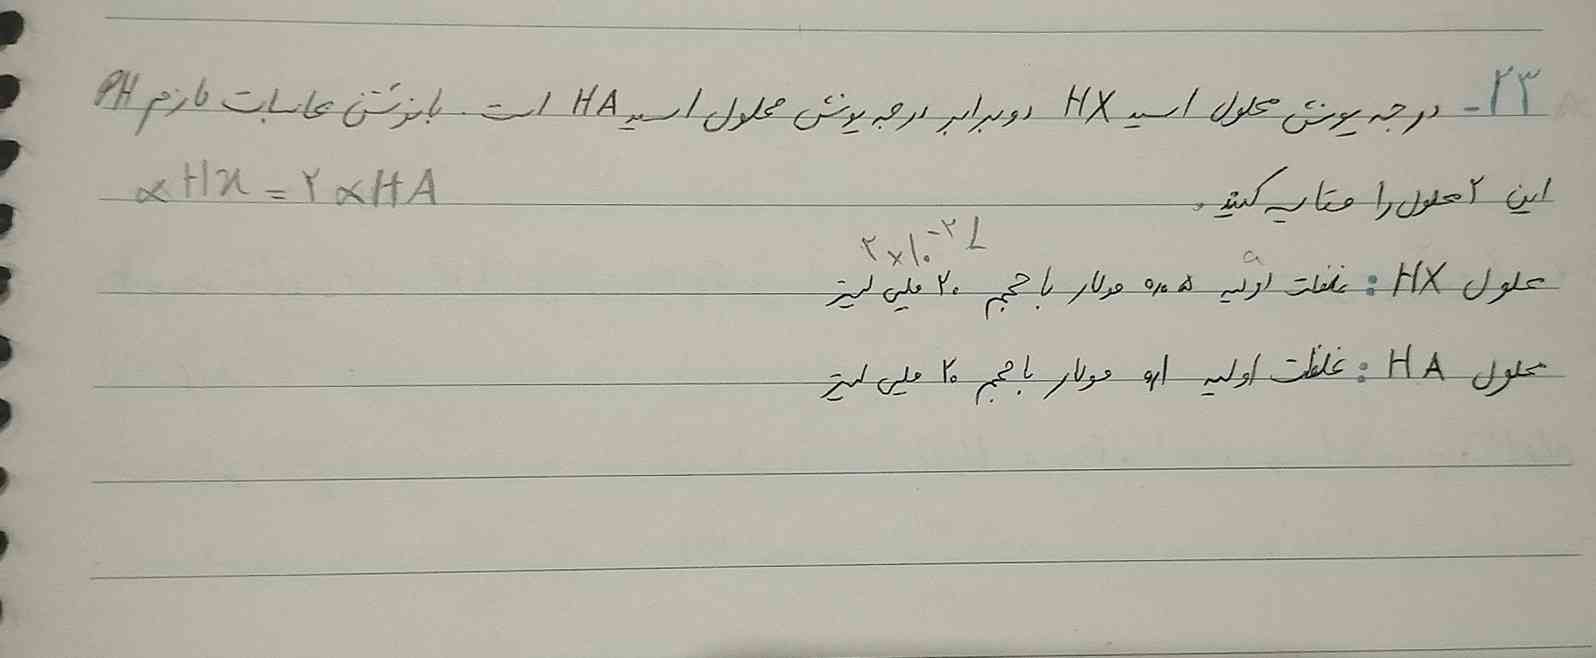 ۲۳- درجه یونش محلول اسید HX دو برابر درجه یونش محلول اسید HA است. با نوشتن محاسبات لازم PH
این ۲ محلول را مقایسه کنید. αHx = ۲ αHA
۲×۱۰⁻² L
محلول HX : غلظت اولیه ۰٫۰۵ مولار با حجم ۲۰ میلی لیتر
محلول HA : غلظت اولیه ۰٫۱ مولار با حجم ۲۰ میلی لیتر